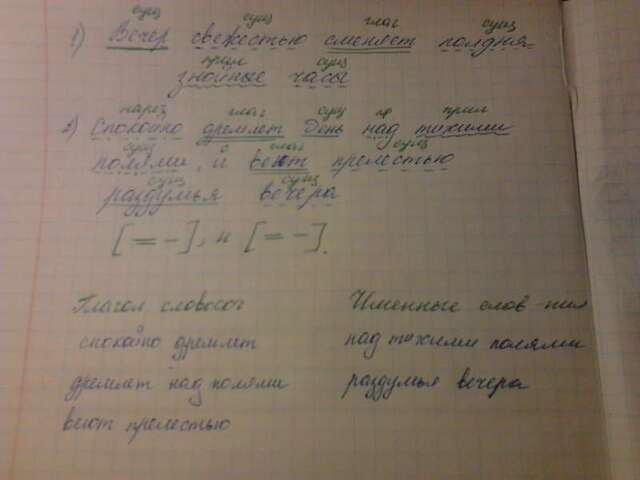 сущ сущ глаг сущ
1) Вечер свежестью сменяет полдня
прил сущ
знойные часы
нареч глаг сущ пр прил
2) Спокойно дремлет день над тихими
сущ с глаг сущ
полями, и веют прелестью
сущ сущ
раздумья вечера
[= -], и [= -].
Глагол словосоч Именные слов-ния
спокойно дремлет над тихими полями
дремлет над полями раздумья вечера
веют прелестью